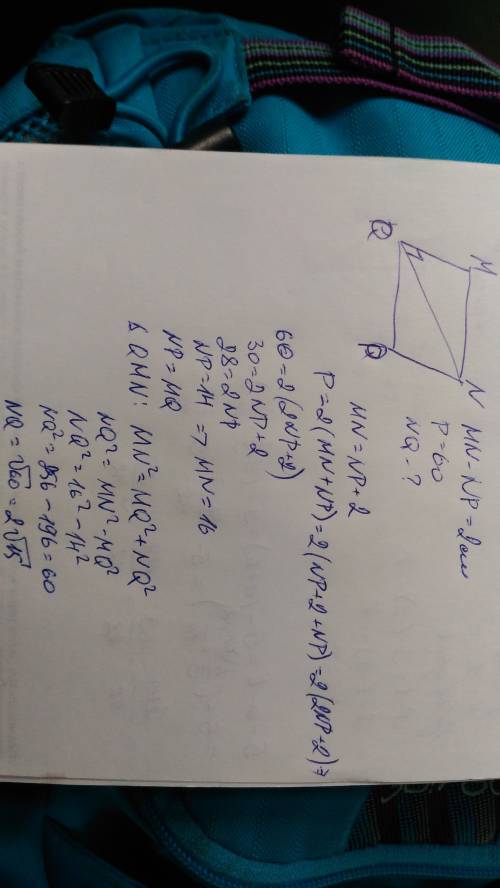 M
N
Q
P
MN - NP = 2см
P = 60
NQ - ?
MN = NP + 2
P = 2(MN + NP) = 2(NP + 2 + NP) = 2(2NP + 2) ⇒
60 = 2(2NP + 2)
30 = 2NP + 2
28 = 2NP
NP = 14 ⇒ MN = 16
NP = MQ
Δ QMN: MN² = MQ² + NQ²
NQ² = MN² - MQ²
NQ² = 16² - 14²
NQ² = 256 - 196 = 60
NQ = √60 = 2√15